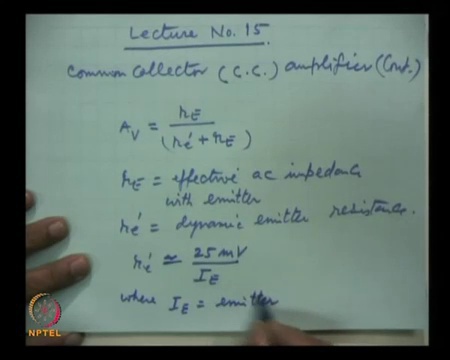 Lecture No. 15.
Common Collector (C.C.) amplifier (Cont.)
A_V = r_E / (r_e' + r_E)
r_E = effective ac impedance
with emitter
r_e' = dynamic emitter resistance.
r_e' ≃ 25 mV / I_E
where I_E = emitter
NPTEL